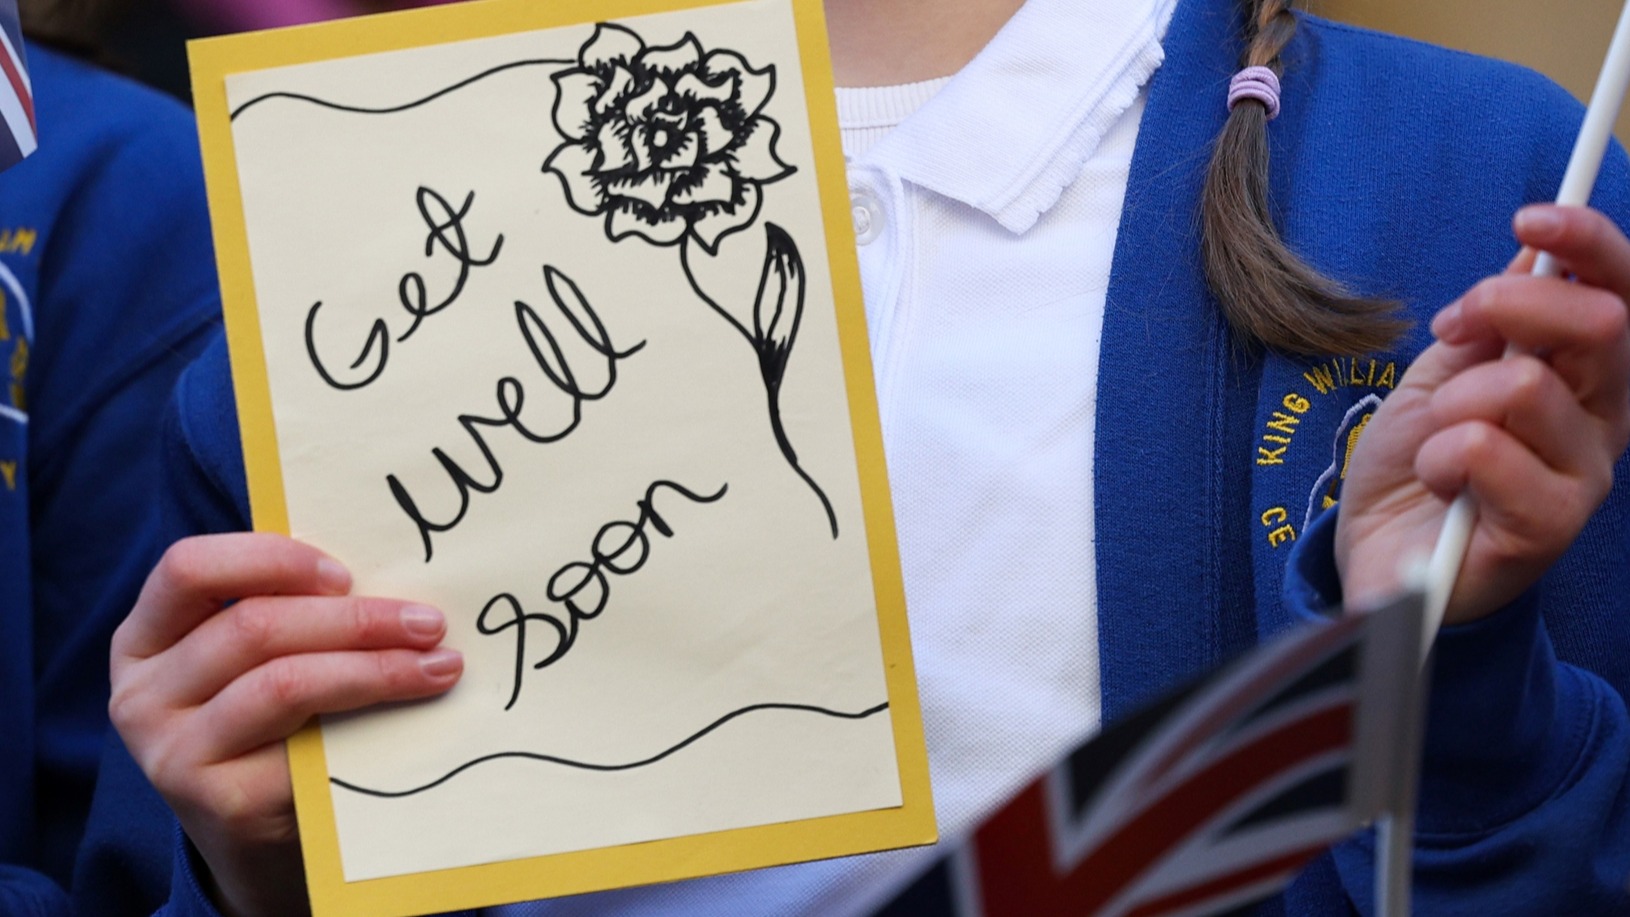 Get
well
soon
KING WILLIA
CE